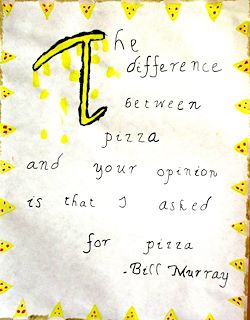 The
difference
between
pizza
and your opinion
is that I asked
for pizza
-Bill Murray